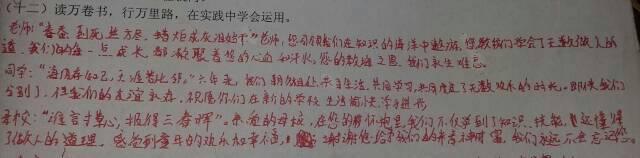 (十二)读万卷书，行万里路，在实践中学会运用。
老师："春蚕到死丝方尽，蜡炬成灰泪始干"老师，您引领我们在知识的海洋中遨游，您教我们学会了无数做人的
道，我们的每一点成长都凝聚着您的心血和汗水，您的教诲之恩，我们永生难忘。
同学："海内存知己，天涯若比邻。"六年来，我们朝夕相处，共同学习，共同度过了无数欢乐的时光，即使我们
分别了，但我们的友谊永存，祝愿你们在新的学校生活愉快，学习进步
母校："谁言寸草心，报得三春晖"。亲爱的母校，在您的怀抱里，我们不仅学到了知识、技能，还懂得
了做人的道理，感受到童年的欢乐和幸福，谢谢您给予我们的培育和财富，我们永远不会忘记您。